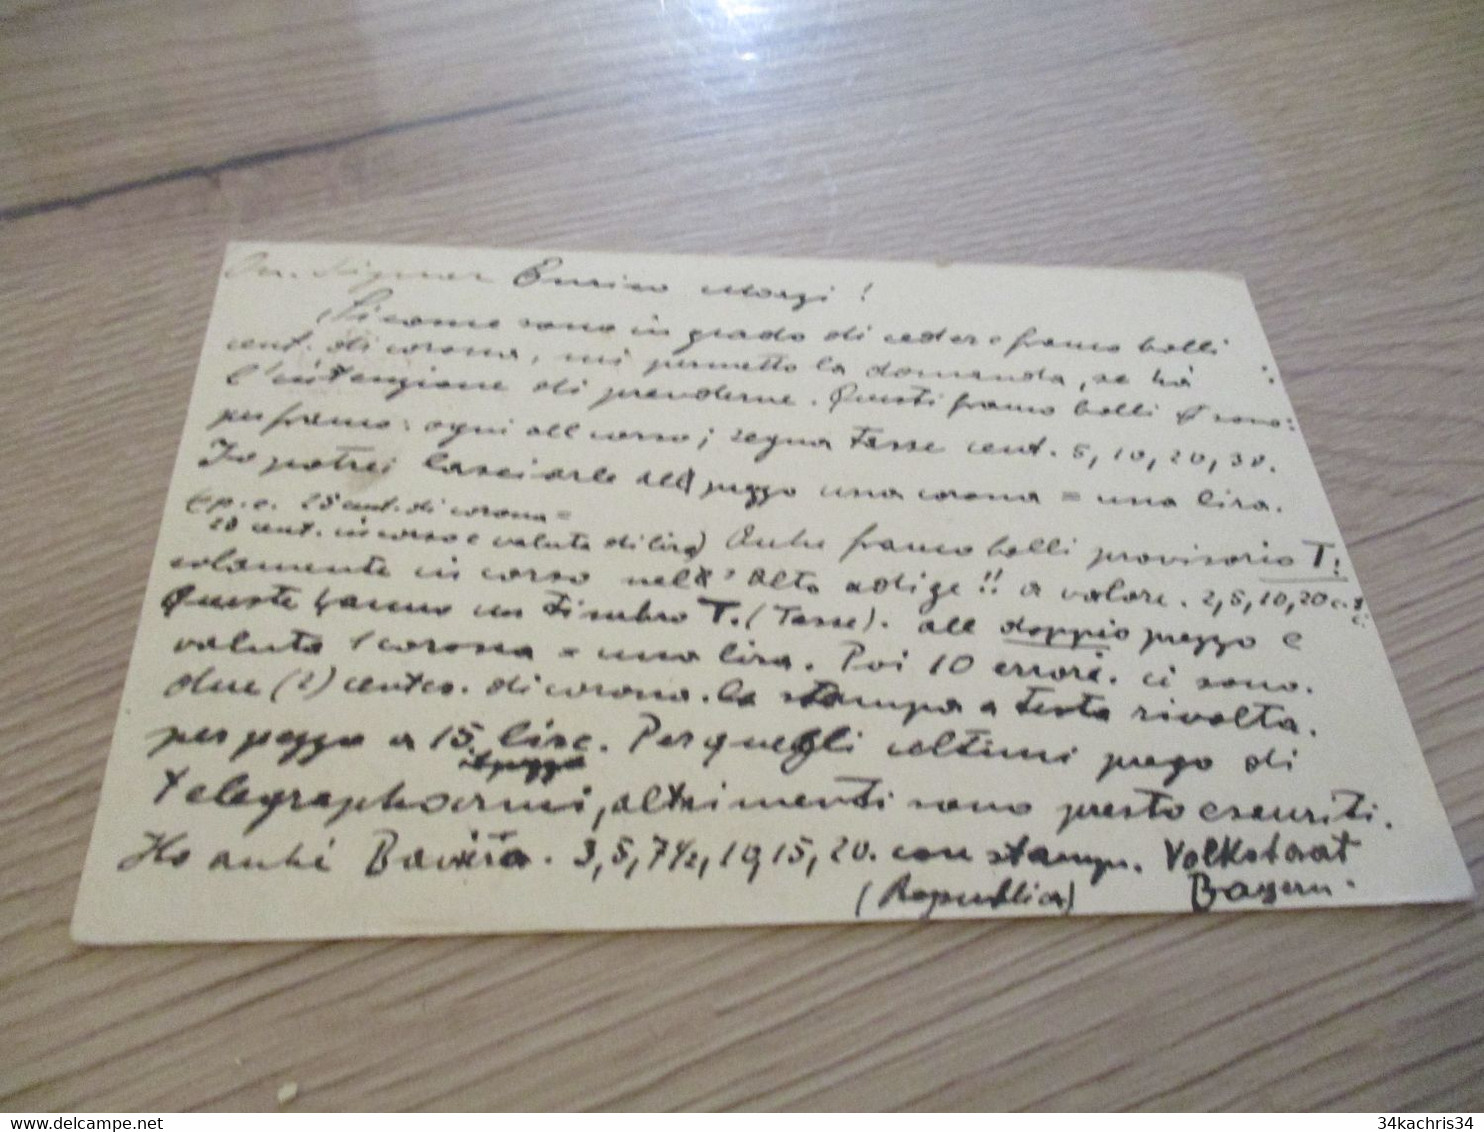 On. Signor Enrico Morzi!
Sicome sono in grado di cedere franco bolli
cent. di corona, mi permetto la domanda, se há
l'intenzione di prenderne. Questi franco bolli sono:
per franco: ogni all corso; segna Tasse cent. 5, 10, 20, 30.
Io potrei lasciarle all prezzo una corona = una lira.
(p. e. 25 cent. di corona =
25 cent. in corso e valuta di lira) Anche franco bolli provisorio T!
solamente in corso nell' Alto adige!! a valore. 2, 5, 10, 20 c.
Queste hanno un timbro T. (Tasse). all doppio prezzo e
valuta 1 corona = una lira. Poi 10 errori. ci sono.
due (2) centes. di corona. la stampa a testa rivolta.
per pezzo a 15 lire. Per quegli ultimi prego di
telegrapharmi, altrimenti sono presto esauriti.
Ho anche Baviera. 3, 5, 7½, 10, 15, 20. con stamp. Volkstaat
(Republica) Bayern.
34kachris34